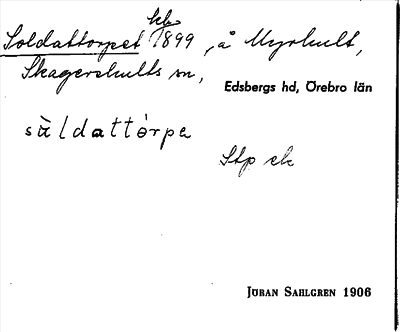 Soldattorpet kb 1899, å Myrhult,
Skagershults sn,
Edsbergs hd, Örebro län
sàldattòrpa
Stp ek
JÖRAN SAHLGREN 1906